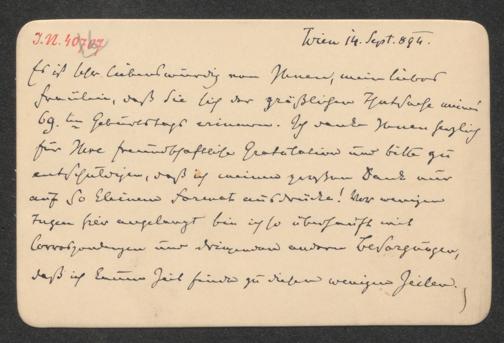 I.N. 40707
Wien 14. Sept. 894.
Es ist sehr liebenswürdig von Ihnen, mein liebes
Fräulein, daß Sie sich der gräßlichen Thatsache meines
69.ten Geburtstags erinnern. Ich danke Ihnen herzlich
für Ihre freundschaftliche Gratulation und bitte zu
entschuldigen, daß ich meinen großen Dank nur
auf so kleinem Format ausdrücke! Vor wenigen
Tagen hier angelangt bin ich so überhäuft mit
Correspondenzen und dringenden anderen Besorgungen,
daß ich kaum Zeit finde zu diesen wenigen Zeilen.